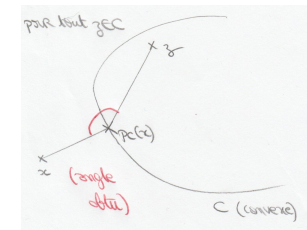 pour tout z∈C
z
pc(x)
x
(angle
obtu)
C (convexe)